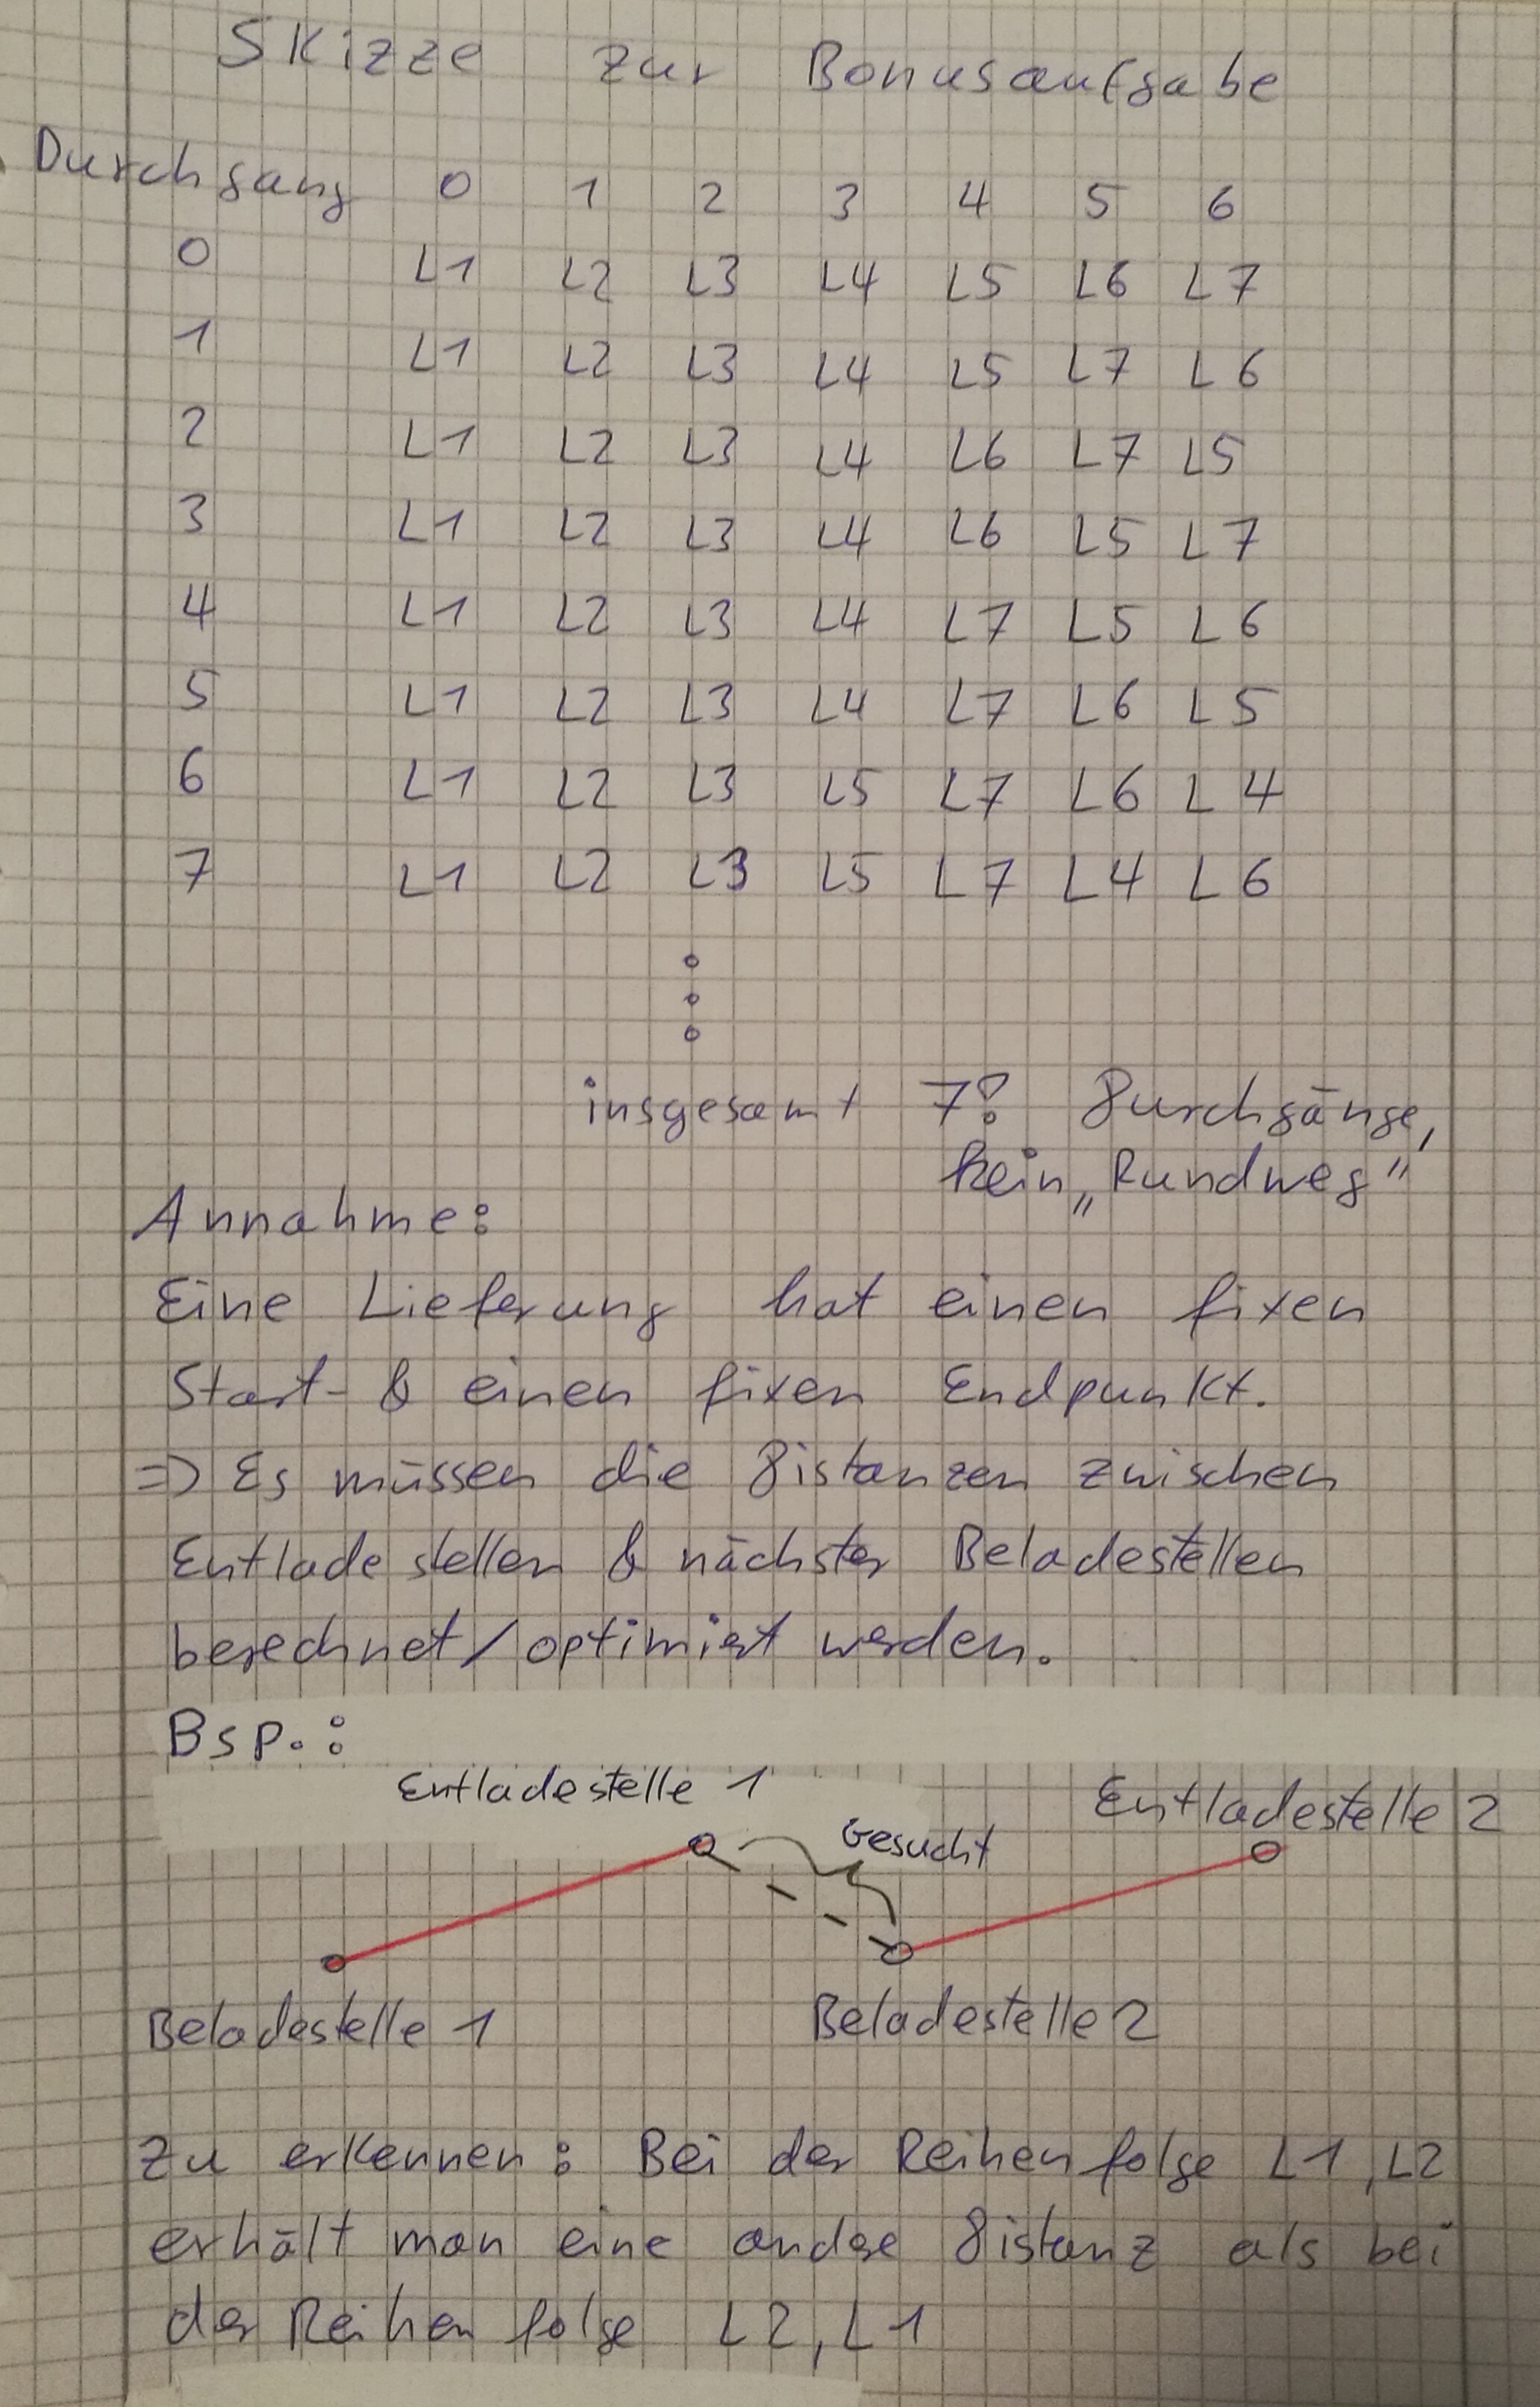 Skizze zur Bonusaufgabe
Durchgang 0 1 2 3 4 5 6
0 L1 L2 L3 L4 L5 L6 L7
1 L1 L2 L3 L4 L5 L7 L6
2 L1 L2 L3 L4 L6 L7 L5
3 L1 L2 L3 L4 L6 L5 L7
4 L1 L2 L3 L4 L7 L5 L6
5 L1 L2 L3 L4 L7 L6 L5
6 L1 L2 L3 L5 L7 L6 L4
7 L1 L2 L3 L5 L7 L4 L6
insgesamt 7! Durchgänge,
kein „Rundweg"
Annahme:
Eine Lieferung hat einen fixen
Start- & einen fixen Endpunkt.
=> Es müssen die Distanzen zwischen
Entladestellen & nächster Beladestellen
berechnet/optimiert werden.
Bsp.:
Entladestelle 1
Entladestelle 2
Gesucht
Beladestelle 1
Beladestelle 2
Zu erkennen: Bei der Reihenfolge L1, L2
erhält man eine andere Distanz als bei
der Reihenfolge L2, L1